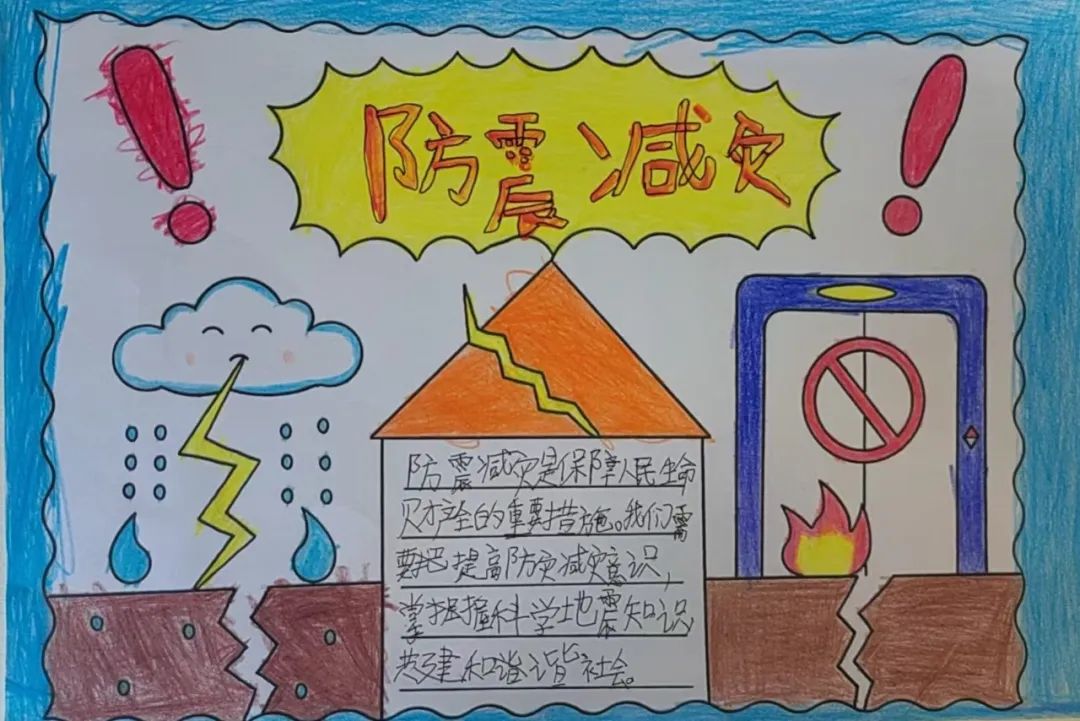 防震减灾
防震减灾是保障人民生命
财产全的重要措施。我们需
要把提高防灾减灾意识，
掌握握科学地震知识
共建和谐谐社会。